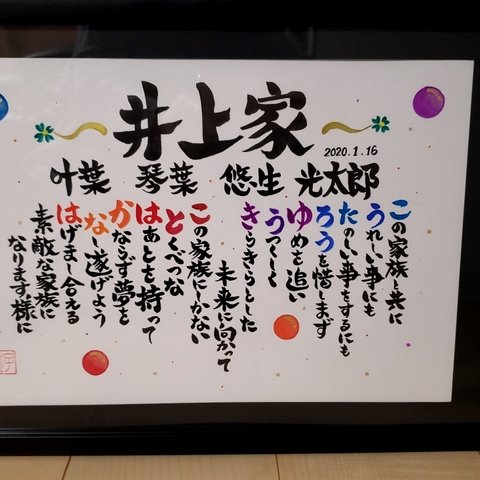 井上家
2020.1.16
叶葉 琴葉 悠生 光太郎
この家族と共に
うれしい事にも
たのしい事をするにも
ろうを惜しまず
ゆめを追い
うつくしく
きらきらとした
未来に向かって
この家族にしかない
とくべつな
はあとを持って
かならず夢を
なし遂げよう
はげまし合える
素敵な家族に
なります様に